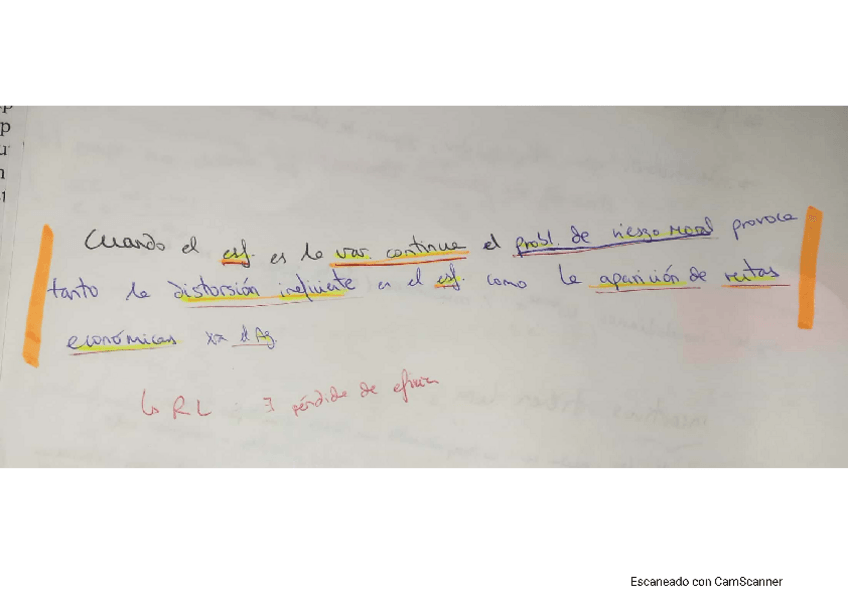 p
p
u
n
Cuando el esf. es la var. continua el probl. de riesgo moral provoca
tanto la distorsión ineficiente en el esf. como la aparición de rentas
económicas xa el Ag.
↳ RL ∃ pérdida de eficiencia
Escaneado con CamScanner